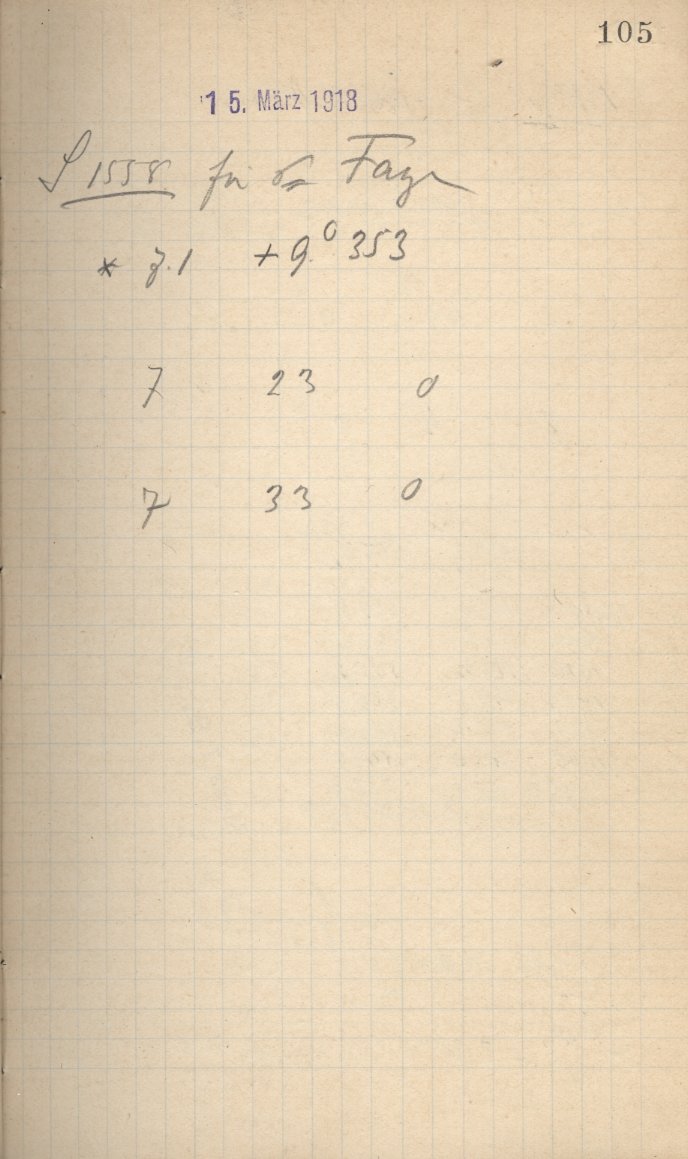 105
15. März 1918
S 1558 für Faye
* 7.1 +9.° 353
7 23 0
7 33 0